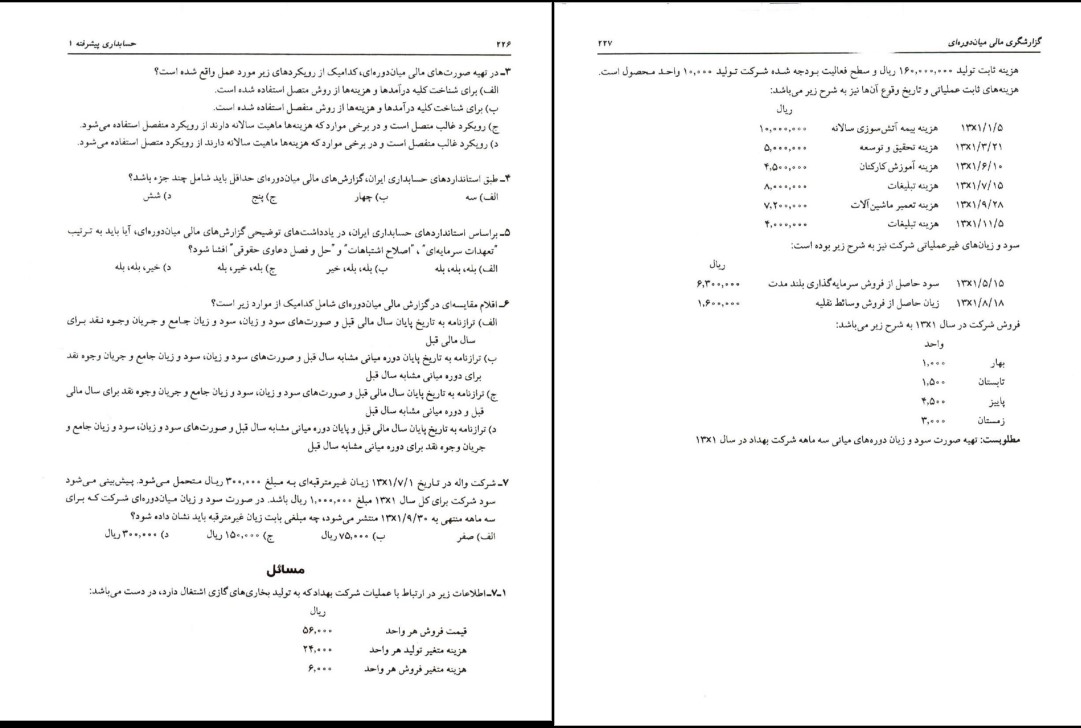 ۲۲۶ حسابداری پیشرفته ۱
۳ـ در تهیه صورت‌های مالی میان‌دوره‌ای، کدامیک از رویکردهای زیر مورد عمل واقع شده است؟
الف) برای شناخت کلیه درآمدها و هزینه‌ها از روش متصل استفاده شده است.
ب) برای شناخت کلیه درآمدها و هزینه‌ها از روش منفصل استفاده شده است.
ج) رویکرد غالب متصل است و در برخی موارد که هزینه‌ها ماهیت سالانه دارند از رویکرد منفصل استفاده می‌شود.
د) رویکرد غالب منفصل است و در برخی موارد که هزینه‌ها ماهیت سالانه دارند از رویکرد متصل استفاده می‌شود.
۴ـ طبق استانداردهای حسابداری ایران، گزارش‌های مالی میان‌دوره‌ای حداقل باید شامل چند جزء باشد؟
الف) سه ب) چهار ج) پنج د) شش
۵ـ براساس استانداردهای حسابداری ایران، در یادداشت‌های توضیحی گزارش‌های مالی میان‌دوره‌ای، آیا باید به ترتیب
"تعهدات سرمایه‌ای"، "اصلاح اشتباهات" و "حل و فصل دعاوی حقوقی" افشا شود؟
الف) بله، بله، بله ب) بله، بله، خیر ج) بله، خیر، بله د) خیر، بله، بله
۶ـ اقلام مقایسه‌ای در گزارش مالی میان‌دوره‌ای شامل کدامیک از موارد زیر است؟
الف) ترازنامه به تاریخ پایان سال مالی قبل و صورت‌های سود و زیان، سود و زیان جامع و جریان وجوه نقد برای
سال مالی قبل
ب) ترازنامه به تاریخ پایان دوره میانی مشابه سال قبل و صورت‌های سود و زیان، سود و زیان جامع و جریان وجوه نقد
برای دوره میانی مشابه سال قبل
ج) ترازنامه به تاریخ پایان سال مالی قبل و صورت‌های سود و زیان، سود و زیان جامع و جریان وجوه نقد برای سال مالی
قبل و دوره میانی مشابه سال قبل
د) ترازنامه به تاریخ پایان سال مالی قبل و پایان دوره میانی مشابه سال قبل و صورت‌های سود و زیان، سود و زیان جامع و
جریان وجوه نقد برای دوره میانی مشابه سال قبل
۷ـ شرکت واله در تاریخ ۱۳X۱/۷/۱ زیان غیرمترقبه‌ای به مبلغ ۳۰۰,۰۰۰ ریال متحمل می‌شود. پیش‌بینی می‌شود
سود شرکت برای کل سال ۱۳X۱ مبلغ ۱,۰۰۰,۰۰۰ ریال باشد. در صورت سود و زیان میان‌دوره‌ای شرکت که برای
سه ماهه منتهی به ۱۳X۱/۹/۳۰ منتشر می‌شود، چه مبلغی بابت زیان غیرمترقبه باید نشان داده شود؟
الف) صفر ب) ۷۵,۰۰۰ ریال ج) ۱۵۰,۰۰۰ ریال د) ۳۰۰,۰۰۰ ریال
مسائل
۷ـ۱ـ اطلاعات زیر در ارتباط با عملیات شرکت بهداد که به تولید بخاری‌های گازی اشتغال دارد، در دست می‌باشد:
ریال
قیمت فروش هر واحد ۵۶,۰۰۰
هزینه متغیر تولید هر واحد ۲۴,۰۰۰
هزینه متغیر فروش هر واحد ۶,۰۰۰
گزارشگری مالی میان‌دوره‌ای ۲۲۷
هزینه ثابت تولید ۱۶۰,۰۰۰,۰۰۰ ریال و سطح فعالیت بودجه شده شرکت تولید ۱۰,۰۰۰ واحد محصول است.
هزینه‌های ثابت عملیاتی و تاریخ وقوع آن‌ها نیز به شرح زیر می‌باشد:
ریال
۱۳X۱/۱/۵ هزینه بیمه آتش‌سوزی سالانه ۱۰,۰۰۰,۰۰۰
۱۳X۱/۳/۲۱ هزینه تحقیق و توسعه ۵,۰۰۰,۰۰۰
۱۳X۱/۶/۱۰ هزینه آموزش کارکنان ۴,۵۰۰,۰۰۰
۱۳X۱/۷/۱۵ هزینه تبلیغات ۸,۰۰۰,۰۰۰
۱۳X۱/۹/۲۸ هزینه تعمیر ماشین‌آلات ۷,۲۰۰,۰۰۰
۱۳X۱/۱۱/۵ هزینه تبلیغات ۴,۰۰۰,۰۰۰
سود و زیان‌های غیرعملیاتی شرکت نیز به شرح زیر بوده است:
ریال
۱۳X۱/۵/۱۵ سود حاصل از فروش سرمایه‌گذاری بلند مدت ۶,۳۰۰,۰۰۰
۱۳X۱/۸/۱۸ زیان حاصل از فروش وسائط نقلیه ۱,۶۰۰,۰۰۰
فروش شرکت در سال ۱۳X۱ به شرح زیر می‌باشد:
واحد
بهار ۱,۰۰۰
تابستان ۱,۵۰۰
پاییز ۴,۵۰۰
زمستان ۳,۰۰۰
مطلوبست: تهیه صورت سود و زیان دوره‌های میانی سه ماهه شرکت بهداد در سال ۱۳X۱